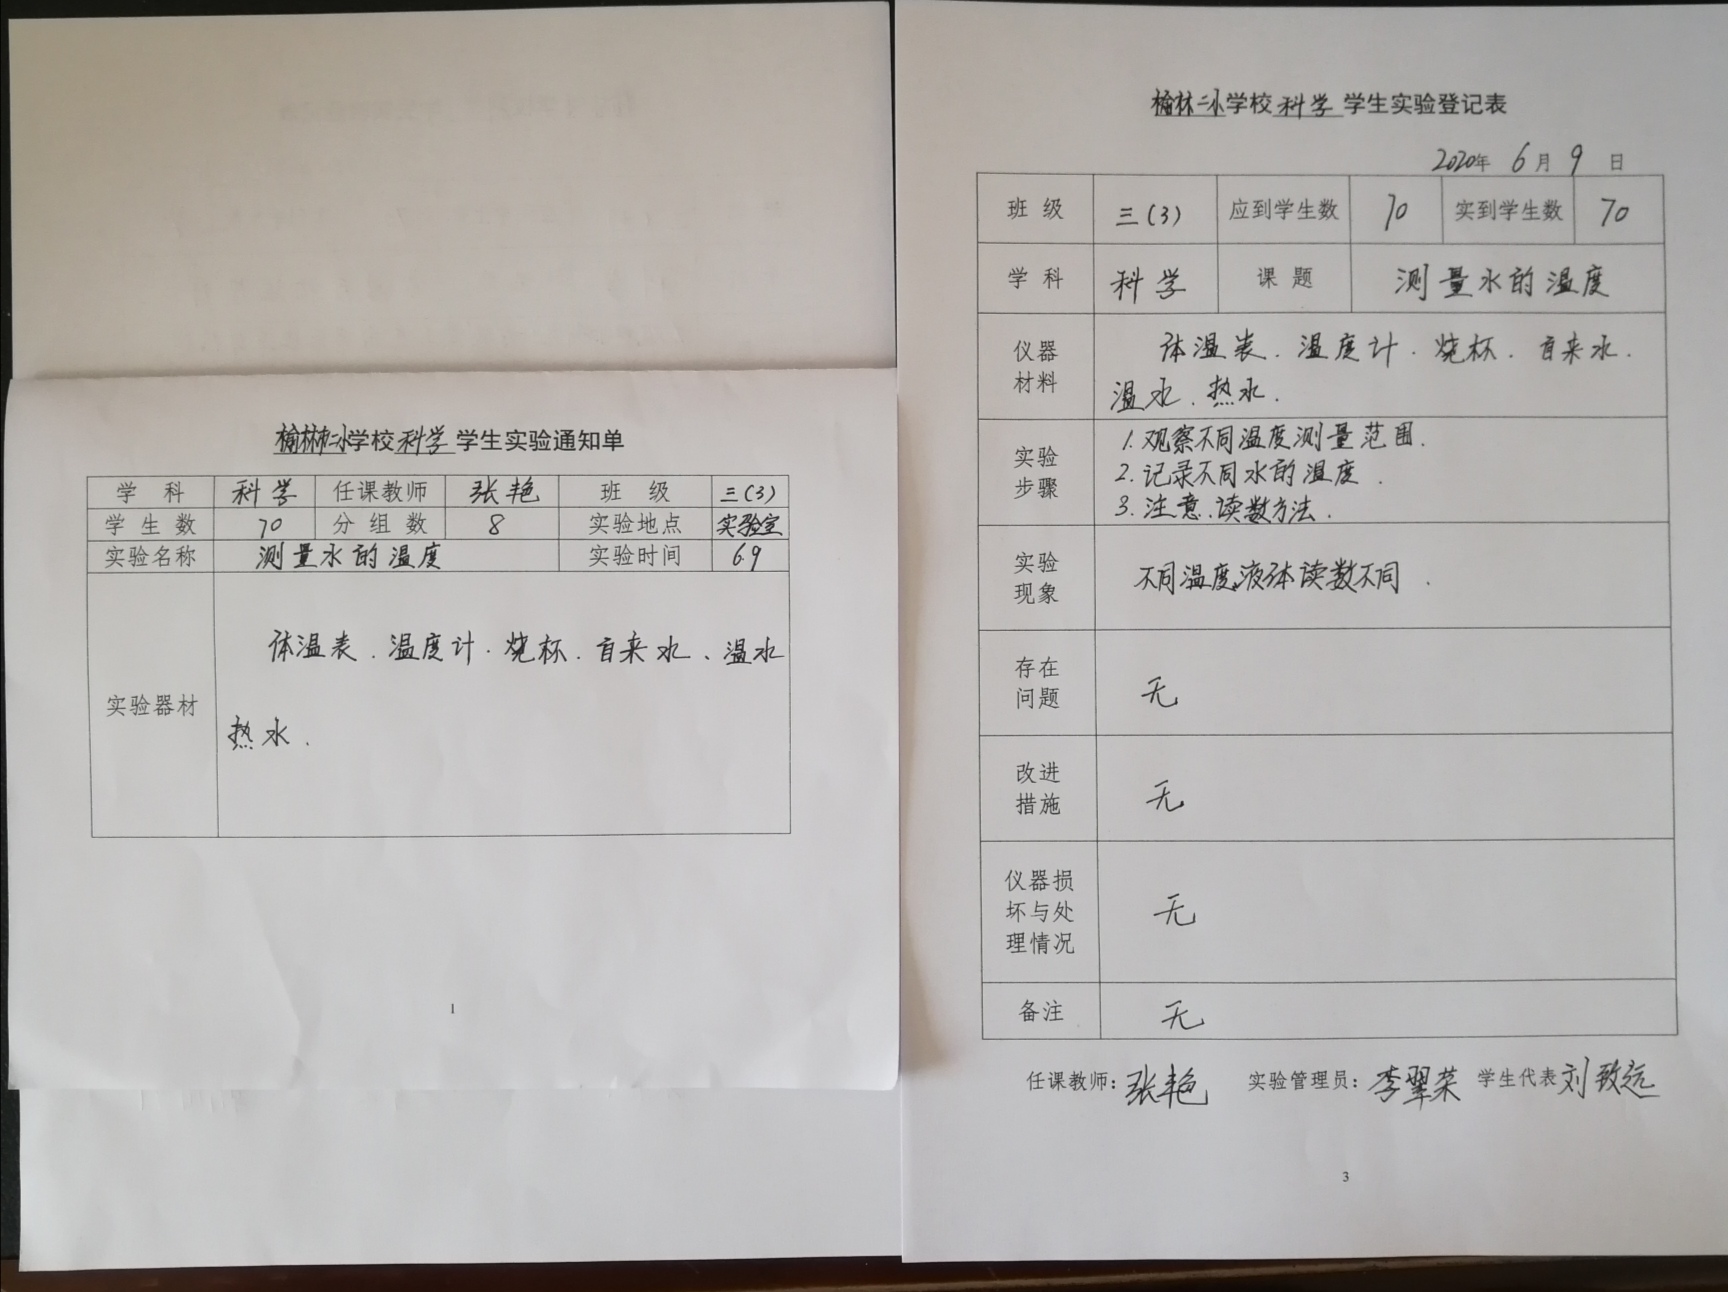 榆林二小学校科学 学生实验通知单
学 科 科学 任课教师 张艳 班 级 三(3)
学生数 70 分组数 8 实验地点 实验室
实验名称 测量水的温度 实验时间 6.9
实验器材 体温表、温度计、烧杯、自来水、温水
热水.
1
榆林二小学校科学 学生实验登记表
2020年 6月 9 日
班 级 三(3) 应到学生数 70 实到学生数 70
学 科 科学 课 题 测量水的温度
仪器材料 体温表.温度计.烧杯.自来水.
温水.热水.
实验步骤 1.观察不同温度测量范围.
2.记录不同水的温度.
3.注意.读数方法.
实验现象 不同温度液体读数不同.
存在问题 无
改进措施 无
仪器损坏与处理情况 无
备注 无
任课教师:张艳 实验管理员:李翠荣 学生代表 刘致远
3